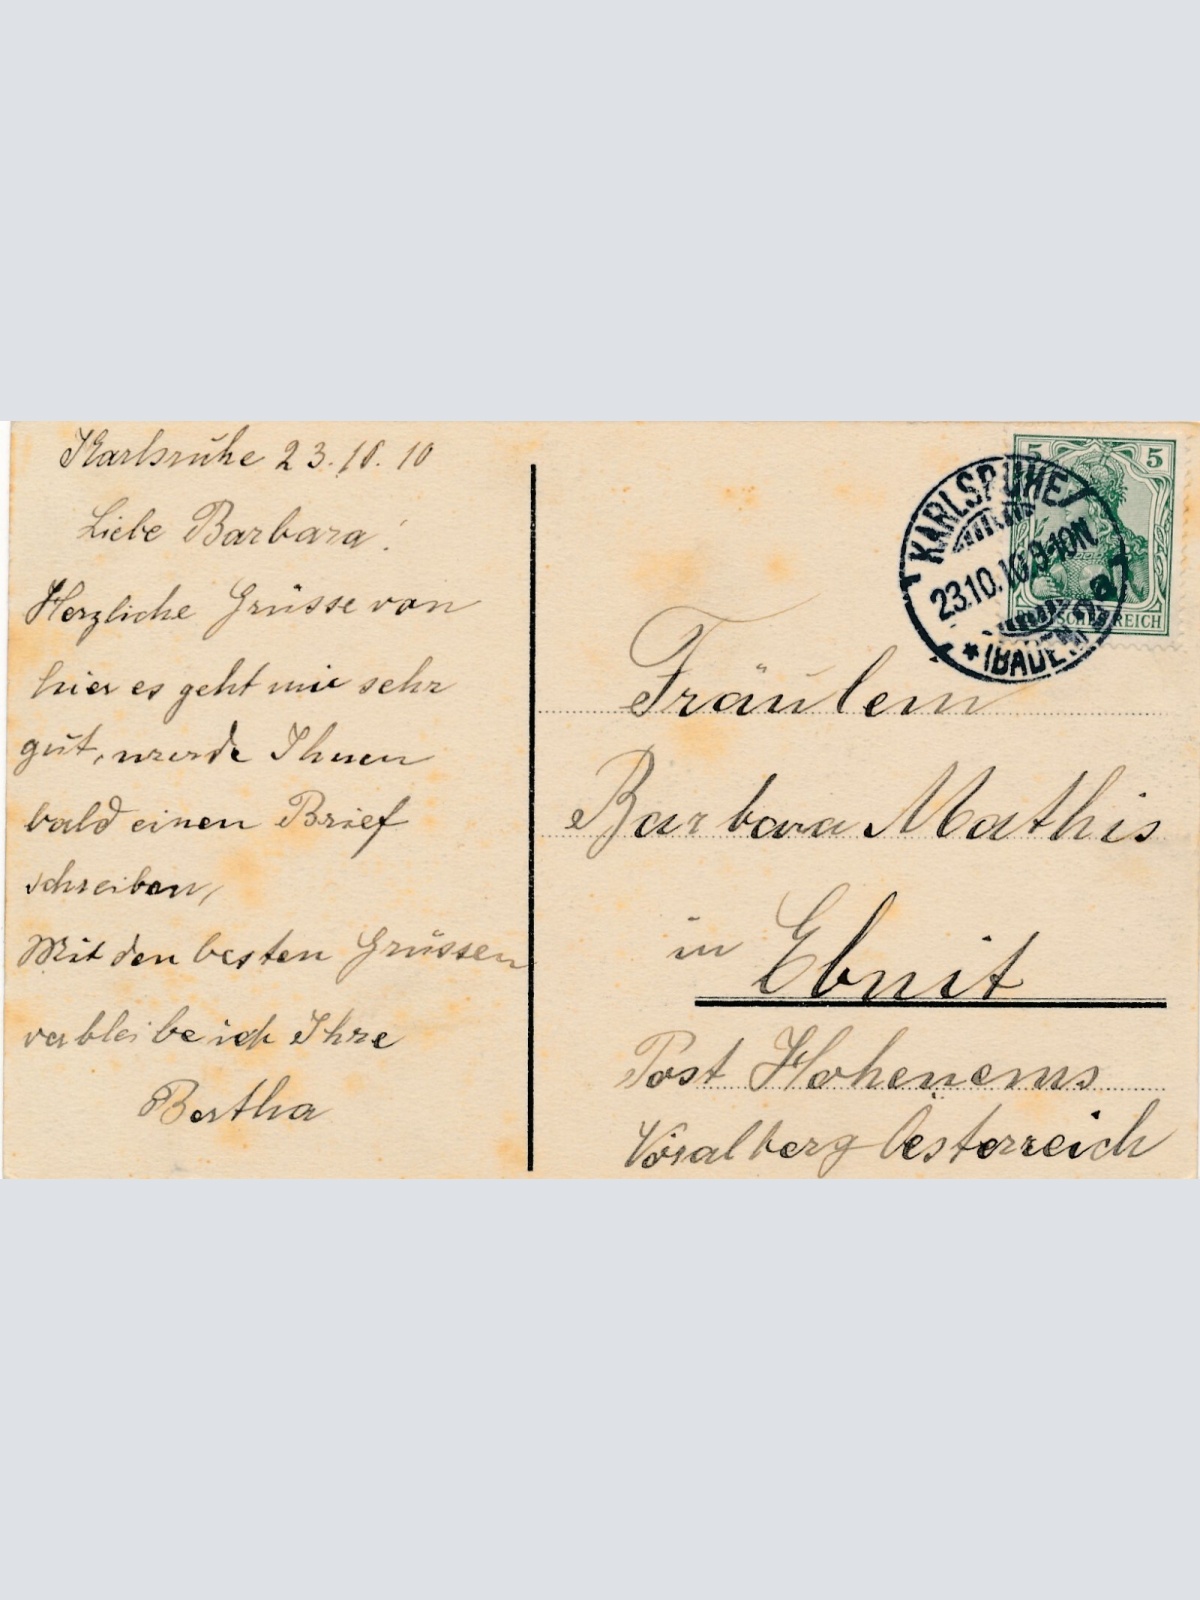 Karlsruhe 23.10.10
Liebe Barbara!
Herzliche Grüsse von
hier es geht mir sehr
gut, werde Ihnen
bald einen Brief
schreiben,
Mit den besten Grüssen
verbleibe ich Ihre
Bertha
5 5
DEUTSCHES REICH
KARLSRUHE
23.10.10.9-10N.
* (BADEN) 2a
Fräulein
Barbara Mathis
in Ebnit
Post Hohenems
Voralberg Oesterreich